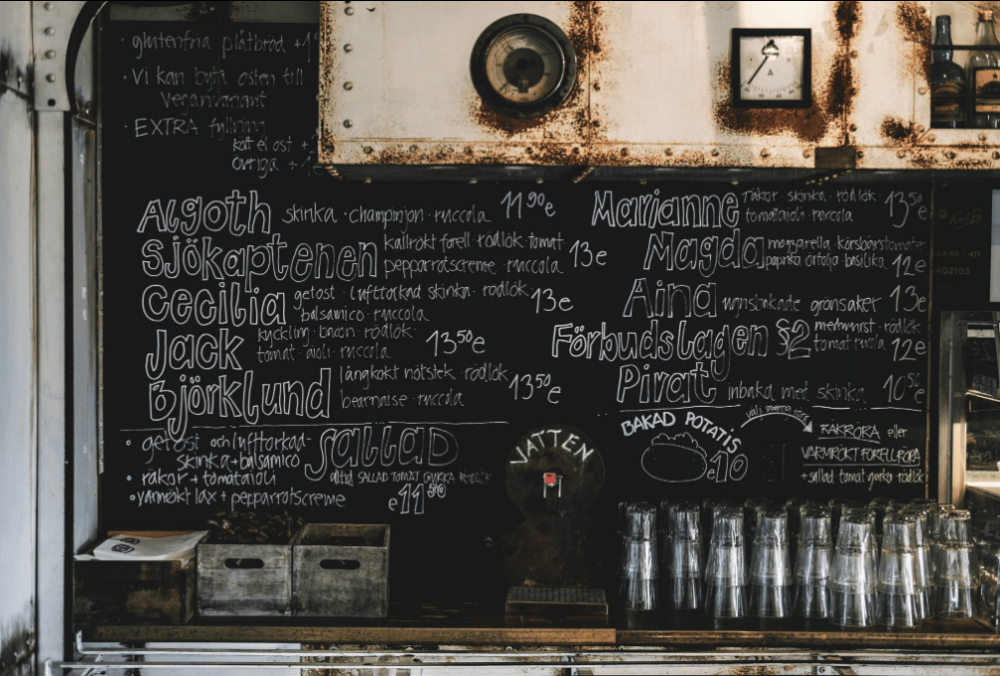 • glutenfria plåtbröd +1
• Vi kan byta osten till
veganvariant
• EXTRA fyllning
kött el ost +
övriga +1
Algoth skinka · champinjon · ruccola 11⁹⁰e
Sjökaptenen kallrökt forell · rödlök · tomat
pepparrotscreme · ruccola 13e
Cecilia getost · lufttorkad skinka · rödlök
balsamico · ruccola 13e
Jack kyckling · bacon · rödlök·
tomat · aioli · ruccola 13⁵⁰e
Björklund långkokt nötstek · rödlök
bearnaise · ruccola 13⁵⁰e
Marianne räkor · skinka · rödlök
tomataioli · ruccola 13⁵⁰e
Magda mozzarella · körsbärstomater
paprika · basilika 12e
Aina ugnsbakade grönsaker 13e
Förbudslagen §2 medwurst · rödlök
tomat · ruccola 12e
Pirat inbakad med skinka 10⁵⁰e
• getost och lufttorkad-
skinka + balsamico
• räkor + tomataioli
• varmrökt lax + pepparrotscreme
Sallad
alltid SALLAD TOMAT GURKA RÖDLÖK
e11⁹⁰
VATTEN
BAKAD POTATIS
e10
RÄKRÖRA eller
VARMRÖKT FORELLRÖRA
+ sallad tomat gurka rödlök
402103
A